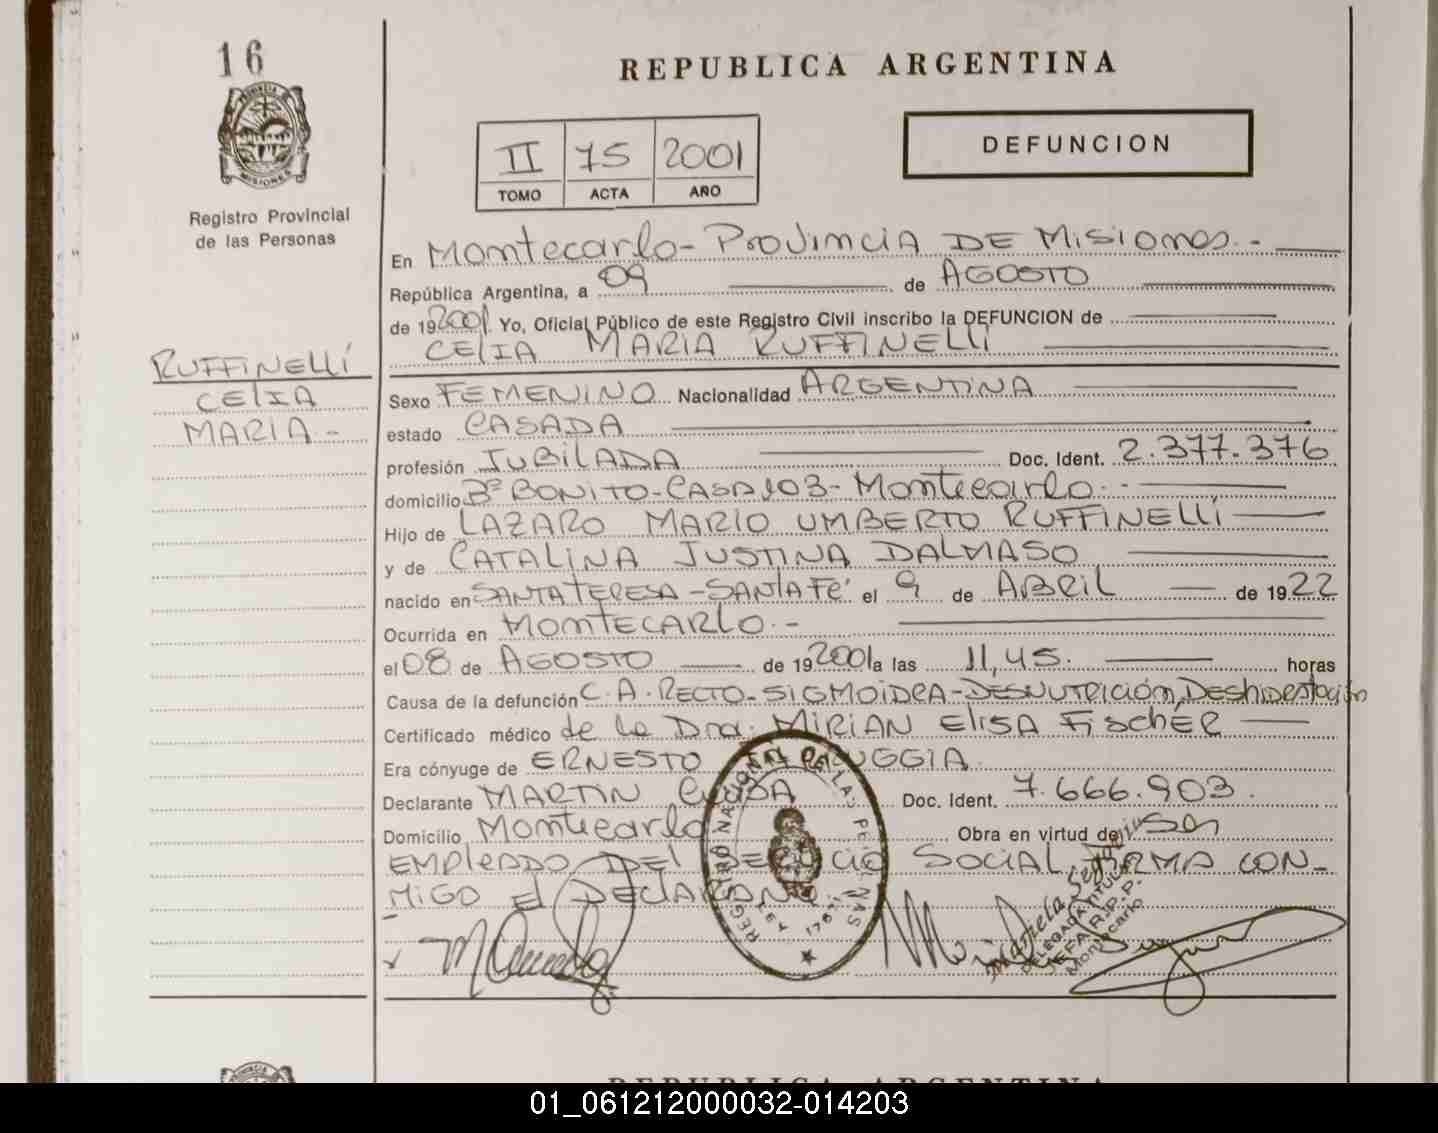 16
REPUBLICA ARGENTINA
PROVINCIA
MISIONES
Registro Provincial
de las Personas
II 75 2001
TOMO ACTA AÑO
DEFUNCION
En Montecarlo- Provincia DE Misiones.-
República Argentina, a 09 de AGOSTO
de 192001. Yo, Oficial Público de este Registro Civil inscribo la DEFUNCION de
CELIA MARIA RUFFINELLI
RUFFINELLI
CELIA
MARIA-
Sexo FEMENINO Nacionalidad ARGENTINA
estado CASADA
profesión JUBILADA Doc. Ident. 2.377.376
domicilio Bº BONITO-CASA 103-Montecarlo.-
Hijo de LAZARO MARIO UMBERTO RUFFINELLI
y de CATALINA JUSTINA DALMASO
nacido en SANTA TERESA-SANTA FE el 9 de ABRIL de 1922
Ocurrida en MONTECARLO.-
el 08 de AGOSTO de 192001 a las 11,45. horas
Causa de la defunción C.A. RECTO-SIGMOIDEA-DESNUTRICIÓN, Deshidratación
Certificado médico de la Dra. MIRIAN ELISA FISCHER
Era cónyuge de ERNESTO
Declarante MARTIN Doc. Ident. 7.666.903.
Domicilio Montecarlo Obra en virtud de Ser
EMPLEADO DEL SERVICIO SOCIAL, FIRMA CON-
MIGO El DECLARANTE
REGISTRO NACIONAL DE LAS PERSONAS
Mariela
DELEGADA TITULAR
JEFA R.P.P.
Montecarlo
REPUBLICA ARGENTINA
01_061212000032-014203